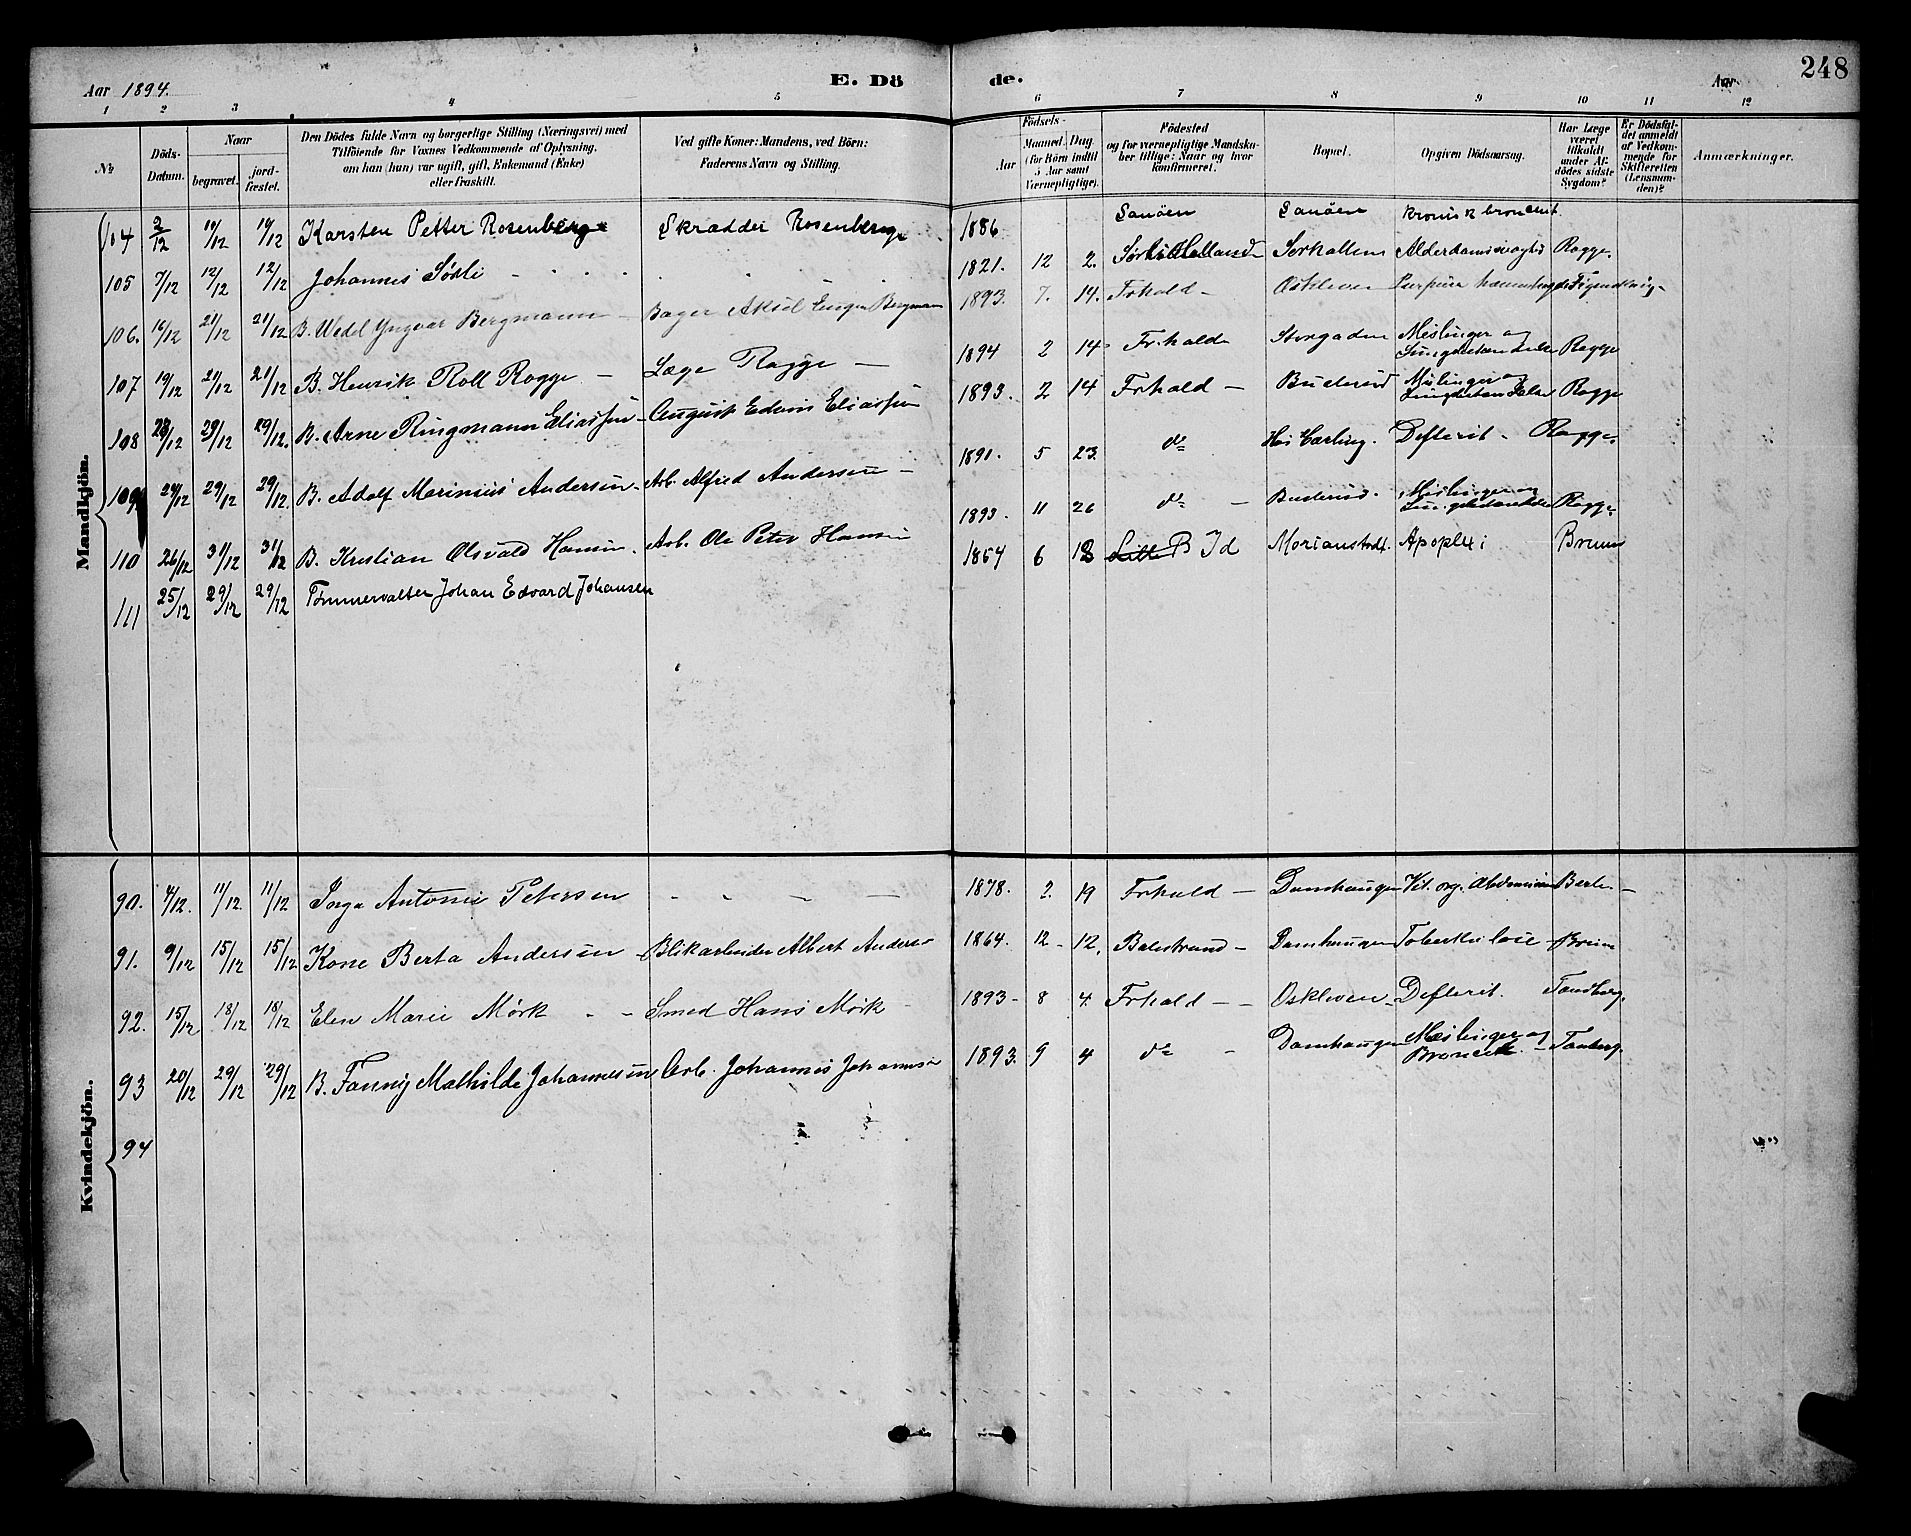 Aar 1894. E. Dö de. Aar 248
1 2 3 4 5 6 7 8 9 10 11 12
№
Döds-Datum.
Naar
begravet.
jord-fæstet.
Den Dödes fulde Navn og borgerlige Stilling (Næringsvei) med
Tilföiende for Voxnes Vedkommende af Oplysning,
om han (hun) var ugift, gift, Enkemand (Enke)
eller fraskilt.
Ved gifte Koner: Mandens, ved Börn:
Faderens Navn og Stilling.
Födsels-
Aar
Maaned. Dag
(for Börn indtil
5 Aar samt
Værnepligtige).
Födested
og for værnepligtige Mandsku-
ber tillige: Naar og hvor
konfirmeret.
Bopæl.
Opgiven Dödsaarsag.
Har Læge
været
tilkaldt
under Af-
dödes sidste
Sygdom?
Er Dödsfal-
det anmeldt
af Vedkom-
mende for
Skifteretten
(Lensman-
den)?
Anmærkninger.
Mandkjön.
104 2/12 10/12 10/12 Karsten Petter Rosenberg Skrædder Rosenberg 1886 Sanöen Sanöen kronisk broncit.
105 7/12 12/12 12/12 Johannes Södli 1821. 12 2. Alderdomssvaghed Rogge.
106. 16/12 21/12 21/12 B. Wedel Yngvar Bergmann Bager Aksel Eugen Bergmann 1893. 7. 14. Frhald Oskleven Purpura
107 19/12 21/12 21/12 B. Henrik Roll Rogge Læge Rogge 1894 2 14 Fr.hald Storgaden Meslinger og Rogge
108 23/12 29/12 29/12. B. Arne Ringmann Eliassen August Edvin Eliassen 1893. 2 14 Frhald Buserud Meslinger og Rogge
109 24/12 29/12 29/12. B. Adolf Marinius Andersen Arb. Alfred Andersen 1891. 5 23. do Defterit Rogge.
110 26/12 31/12 31/12 B. Kristian Olsvald Hansen. Arb. Ole Peter Hansen 1893. 11 26 do Buserud. Meslinger og Rogge
111 25/12 29/12 29/12 Tømmervalter Johan Edvard Johansen 1854 6 18 B Id Apoplexi Bruun
Kvindekjön.
90. 4/12. 11/12 11/12 Inga Antonie Petersen 1878. 2. 19 Frhald Damhaugen Vit. org.
91. 9/12 15/12 15/12 Kone Berta Andersen Blikarbeider Albert Anders 1864. 12 12. Balestrand Damhaugen Toberkulose
92. 15/12 18/12 18/12 Elen Marie Mörk Smed Hans Mörk 1893 8 4. Frhald Oskleven Defterit. Tandberg.
93 20/12 29/12 29/12 B. Fanny Mathilde Johannesen Arb. Johannes Johannes 1893. 9 4 do Damhaugen Meslinger og Broncit.
94